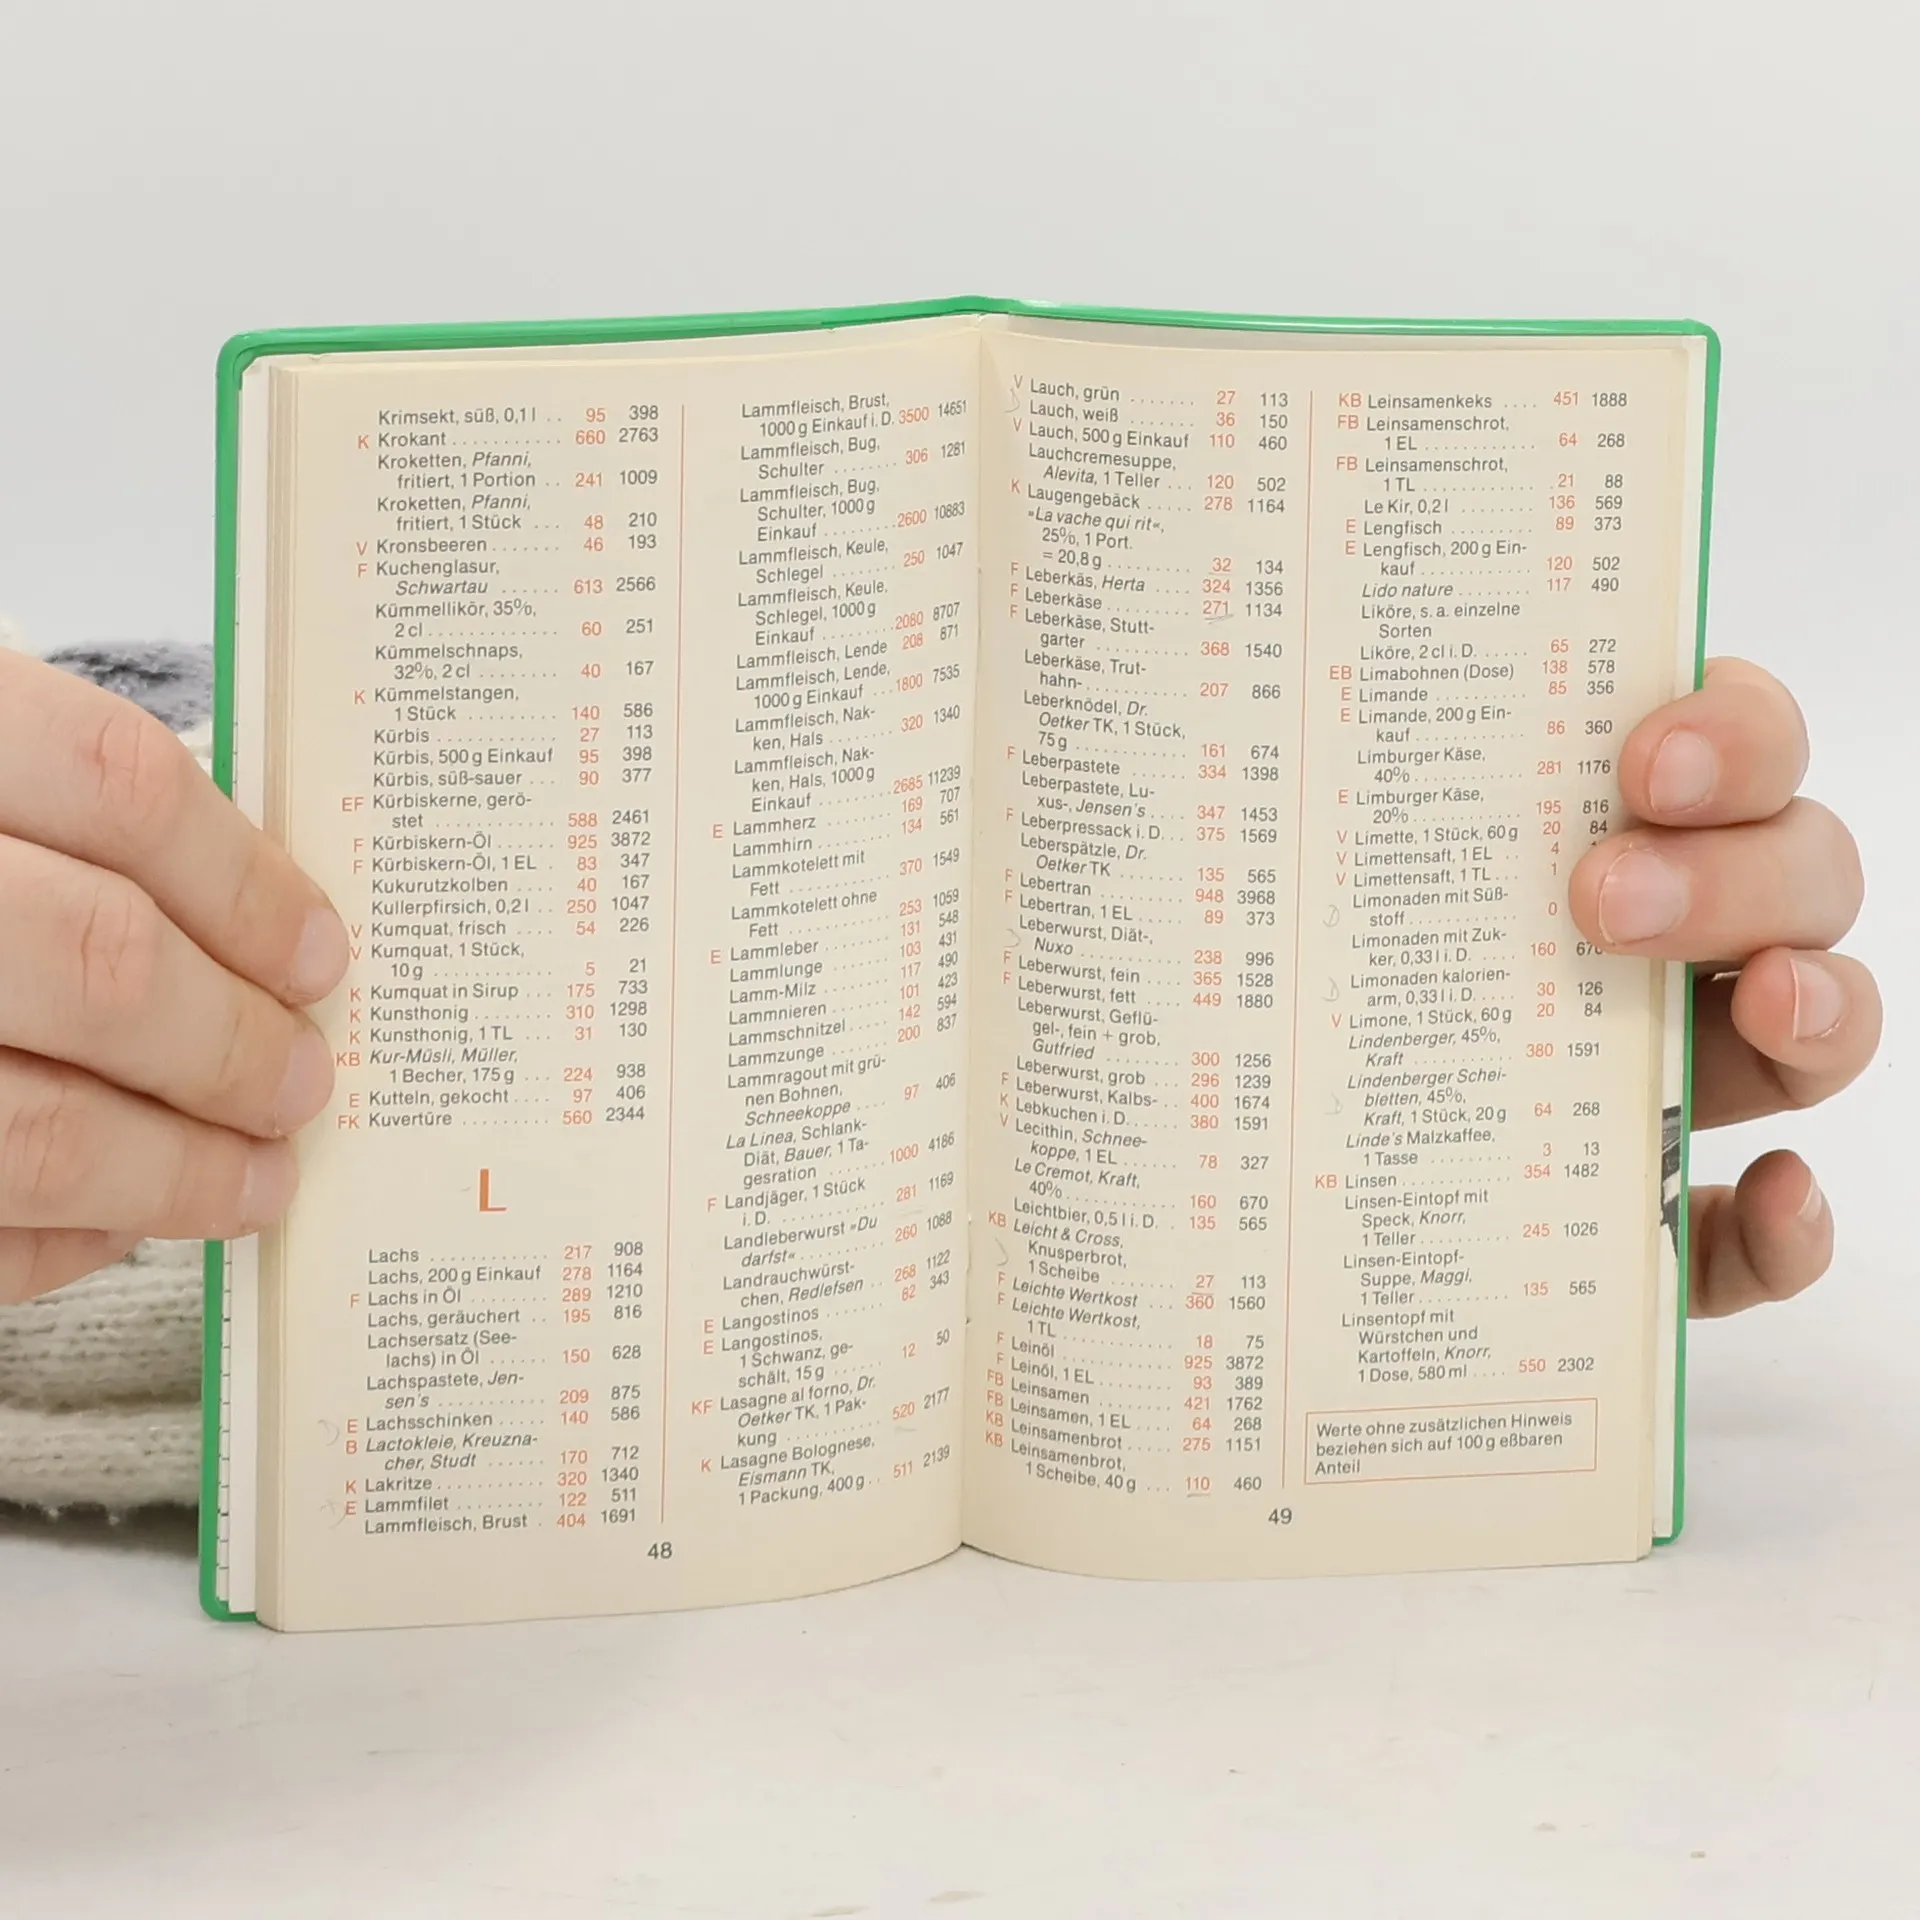 Krimsekt, süß, 0,1 l .. 95 398
K Krokant ........... 660 2763
Kroketten, Pfanni,
fritiert, 1 Portion .. 241 1009
Kroketten, Pfanni,
fritiert, 1 Stück ... 48 210
V Kronsbeeren ....... 46 193
F Kuchenglasur,
Schwartau ...... 613 2566
Kümmellikör, 35%,
2 cl ............. 60 251
Kümmelschnaps,
32%, 2 cl ........ 40 167
K Kümmelstangen,
1 Stück ......... 140 586
Kürbis ............ 27 113
Kürbis, 500 g Einkauf 95 398
Kürbis, süß-sauer ... 90 377
EF Kürbiskerne, gerö-
stet ............ 588 2461
F Kürbiskern-Öl ...... 925 3872
F Kürbiskern-Öl, 1 EL . 83 347
Kukurutzkolben .... 40 167
Kullerpfirsich, 0,2 l .. 250 1047
V Kumquat, frisch .... 54 226
V Kumquat, 1 Stück,
10 g ............ 5 21
K Kumquat in Sirup ... 175 733
K Kunsthonig ........ 310 1298
K Kunsthonig, 1 TL ... 31 130
KB Kur-Müsli, Müller,
1 Becher, 175 g ... 224 938
E Kutteln, gekocht .... 97 406
FK Kuvertüre ......... 560 2344
L
Lachs ............ 217 908
Lachs, 200 g Einkauf 278 1164
F Lachs in Öl ........ 289 1210
Lachs, geräuchert .. 195 816
Lachsersatz (See-
lachs) in Öl ...... 150 628
Lachspastete, Jen-
sen's ........... 209 875
E Lachsschinken ..... 140 586
B Lactokleie, Kreuzna-
cher, Studt ...... 170 712
K Lakritze ........... 320 1340
E Lammfilet ......... 122 511
Lammfleisch, Brust . 404 1691
48
Lammfleisch, Brust,
1000 g Einkauf i. D. 3500 14651
Lammfleisch, Bug,
Schulter ........ 306 1281
Lammfleisch, Bug,
Schulter, 1000 g
Einkauf ........ 2600 10883
Lammfleisch, Keule,
Schlegel ........ 250 1047
Lammfleisch, Keule,
Schlegel, 1000 g
Einkauf ......... 2080 8707
Lammfleisch, Lende 208 871
Lammfleisch, Lende,
1000 g Einkauf ... 1800 7535
Lammfleisch, Nak-
ken, Hals ........ 320 1340
Lammfleisch, Nak-
ken, Hals, 1000 g
Einkauf ......... 2685 11239
E Lammherz ........ 169 707
Lammhirn ......... 134 561
Lammkotelett mit
Fett ............ 370 1549
Lammkotelett ohne
Fett ............ 253 1059
E Lammleber ........ 131 548
Lammlunge ....... 103 431
Lamm-Milz ........ 117 490
Lammnieren ....... 101 423
Lammschnitzel ..... 142 594
Lammzunge ....... 200 837
Lammragout mit grü-
nen Bohnen,
Schneekoppe .... 97 406
La Linea, Schlank-
Diät, Bauer, 1 Ta-
gesration ....... 1000 4186
F Landjäger, 1 Stück
i. D. ............. 281 1169
Landleberwurst »Du
darfst« .......... 260 1088
Landrauchwürst-
chen, Redlefsen .. 268 1122
E Langostinos ....... 82 343
E Langostinos,
1 Schwanz, ge-
schält, 15 g ...... 12 50
KF Lasagne al forno, Dr.
Oetker TK, 1 Pak-
kung ........... 520 2177
K Lasagne Bolognese,
Eismann TK,
1 Packung, 400 g .. 511 2139
V Lauch, grün ....... 27 113
Lauch, weiß ....... 36 150
V Lauch, 500 g Einkauf 110 460
Lauchcremesuppe,
Alevita, 1 Teller ... 120 502
K Laugengebäck ..... 278 1164
»La vache qui rit«,
25%, 1 Port.
= 20,8 g ......... 32 134
F Leberkäs, Herta .... 324 1356
F Leberkäse ......... 271 1134
F Leberkäse, Stutt-
garter .......... 368 1540
Leberkäse, Trut-
hahn- .......... 207 866
Leberknödel, Dr.
Oetker TK, 1 Stück,
75 g ............ 161 674
F Leberpastete ...... 334 1398
Leberpastete, Lu-
xus-, Jensen's .... 347 1453
F Leberpressack i. D. .. 375 1569
Leberspätzle, Dr.
Oetker TK ....... 135 565
F Lebertran ......... 948 3968
F Lebertran, 1 EL ..... 89 373
Leberwurst, Diät-,
Nuxo ........... 238 996
F Leberwurst, fein .... 365 1528
F Leberwurst, fett .... 449 1880
Leberwurst, Geflü-
gel-, fein + grob,
Gutfried ........ 300 1256
Leberwurst, grob ... 296 1239
F Leberwurst, Kalbs- .. 400 1674
K Lebkuchen i. D. ..... 380 1591
V Lecithin, Schnee-
koppe, 1 EL ...... 78 327
Le Cremot, Kraft,
40% ............ 160 670
Leichtbier, 0,5 l i. D. . 135 565
KB Leicht & Cross,
Knusperbrot,
1 Scheibe ....... 27 113
F Leichte Wertkost ... 360 1560
F Leichte Wertkost,
1 TL ............ 18 75
F Leinöl ............ 925 3872
F Leinöl, 1 EL ........ 93 389
FB Leinsamen ........ 421 1762
FB Leinsamen, 1 EL .... 64 268
KB Leinsamenbrot ..... 275 1151
KB Leinsamenbrot,
1 Scheibe, 40 g ... 110 460
49
KB Leinsamenkeks .... 451 1888
FB Leinsamenschrot,
1 EL ............ 64 268
FB Leinsamenschrot,
1 TL ............ 21 88
Le Kir, 0,2 l ........ 136 569
E Lengfisch ......... 89 373
E Lengfisch, 200 g Ein-
kauf ............ 120 502
Lido nature ........ 117 490
Liköre, s. a. einzelne
Sorten
Liköre, 2 cl i. D. ..... 65 272
EB Limabohnen (Dose) 138 578
E Limande .......... 85 356
E Limande, 200 g Ein-
kauf ............ 86 360
Limburger Käse,
40% ............ 281 1176
E Limburger Käse,
20% ............ 195 816
V Limette, 1 Stück, 60 g 20 84
V Limettensaft, 1 EL .. 4
V Limettensaft, 1 TL ... 1
Limonaden mit Süß-
stoff ............ 0
Limonaden mit Zuk-
ker, 0,33 l i. D. .... 160 670
Limonaden kalorien-
arm, 0,33 l i. D. .... 30 126
V Limone, 1 Stück, 60 g 20 84
Lindenberger, 45%,
Kraft ........... 380 1591
Lindenberger Schei-
bletten, 45%,
Kraft, 1 Stück, 20 g 64 268
Linde's Malzkaffee,
1 Tasse ......... 3 13
KB Linsen ............ 354 1482
Linsen-Eintopf mit
Speck, Knorr,
1 Teller .......... 245 1026
Linsen-Eintopf-
Suppe, Maggi,
1 Teller .......... 135 565
Linsentopf mit
Würstchen und
Kartoffeln, Knorr,
1 Dose, 580 ml .... 550 2302
Werte ohne zusätzlichen Hinweis
beziehen sich auf 100 g eßbaren
Anteil